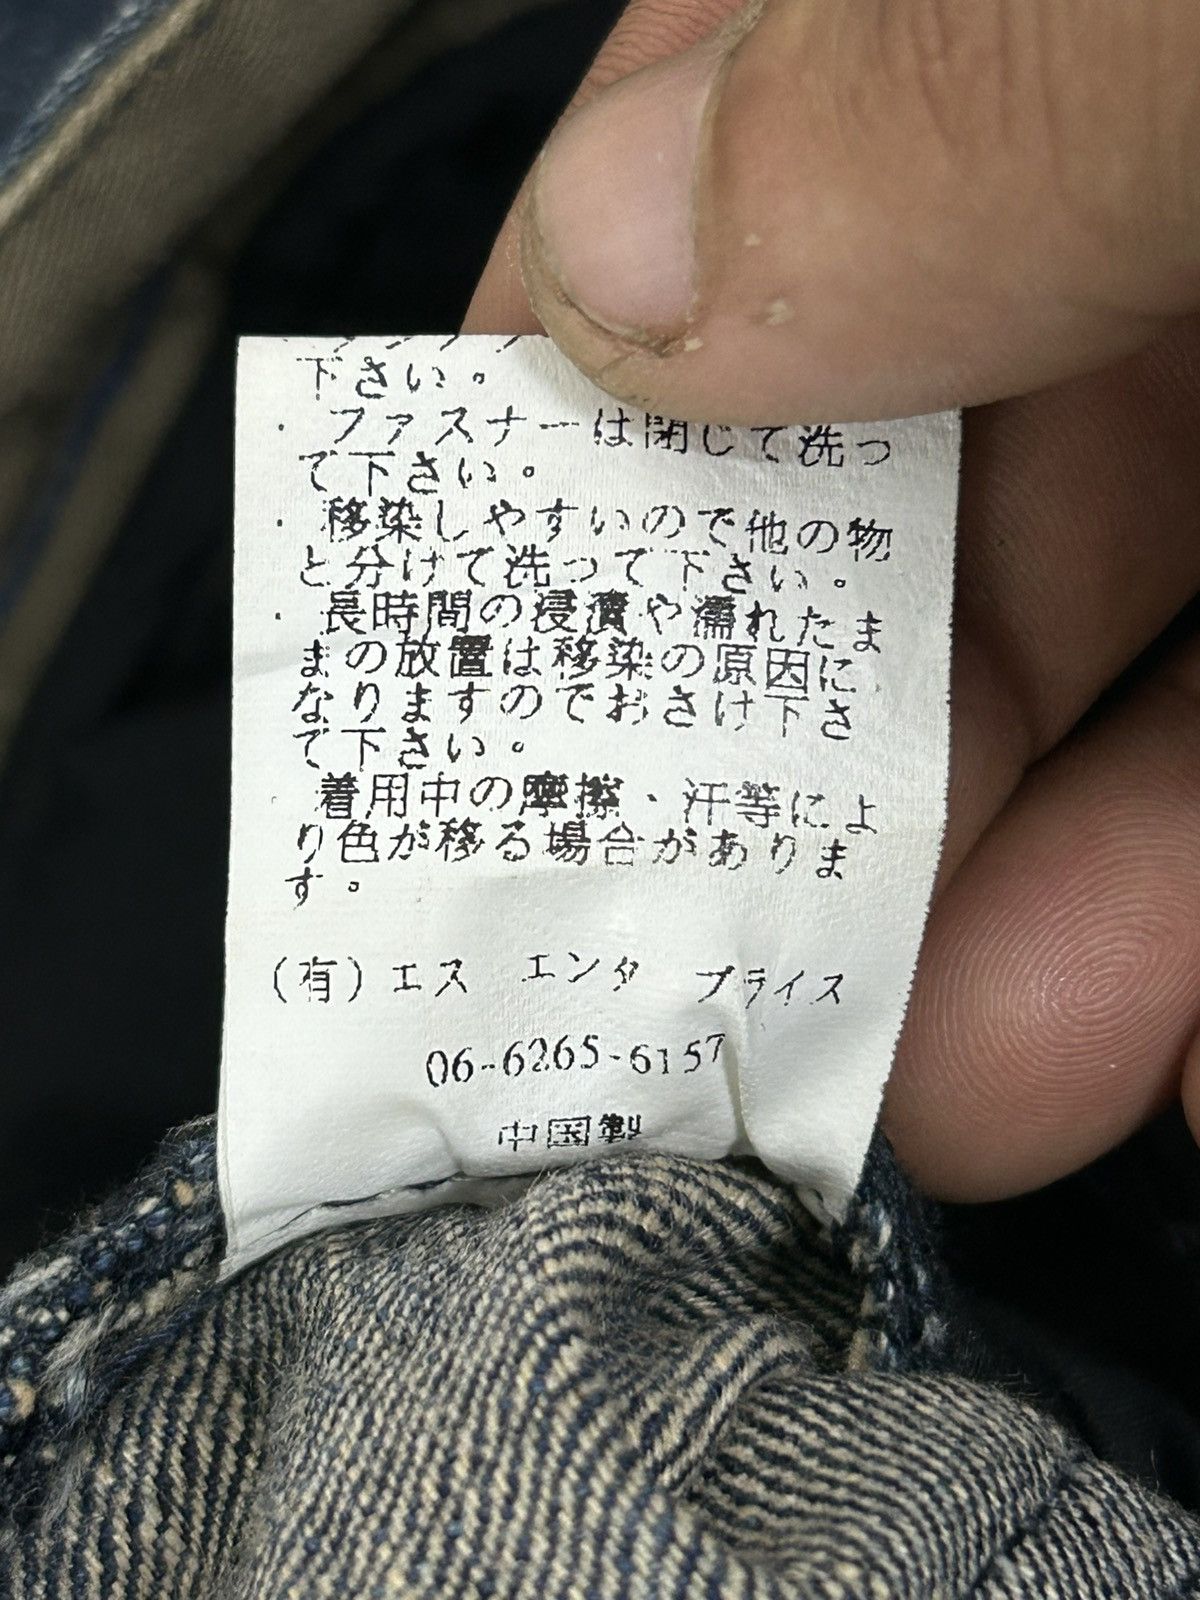 下さい。
・ファスナーは閉じて洗っ
て下さい。
・移染しやすいので他の物
と分けて洗って下さい。
・長時間の浸漬や濡れたま
まの放置は移染の原因に
なりますのでおさけ下さ
て下さい。
・着用中の摩擦、汗等によ
り色が移る場合がありま
す。
(有)エス エンタ プライス
06-6265-6157
中国製